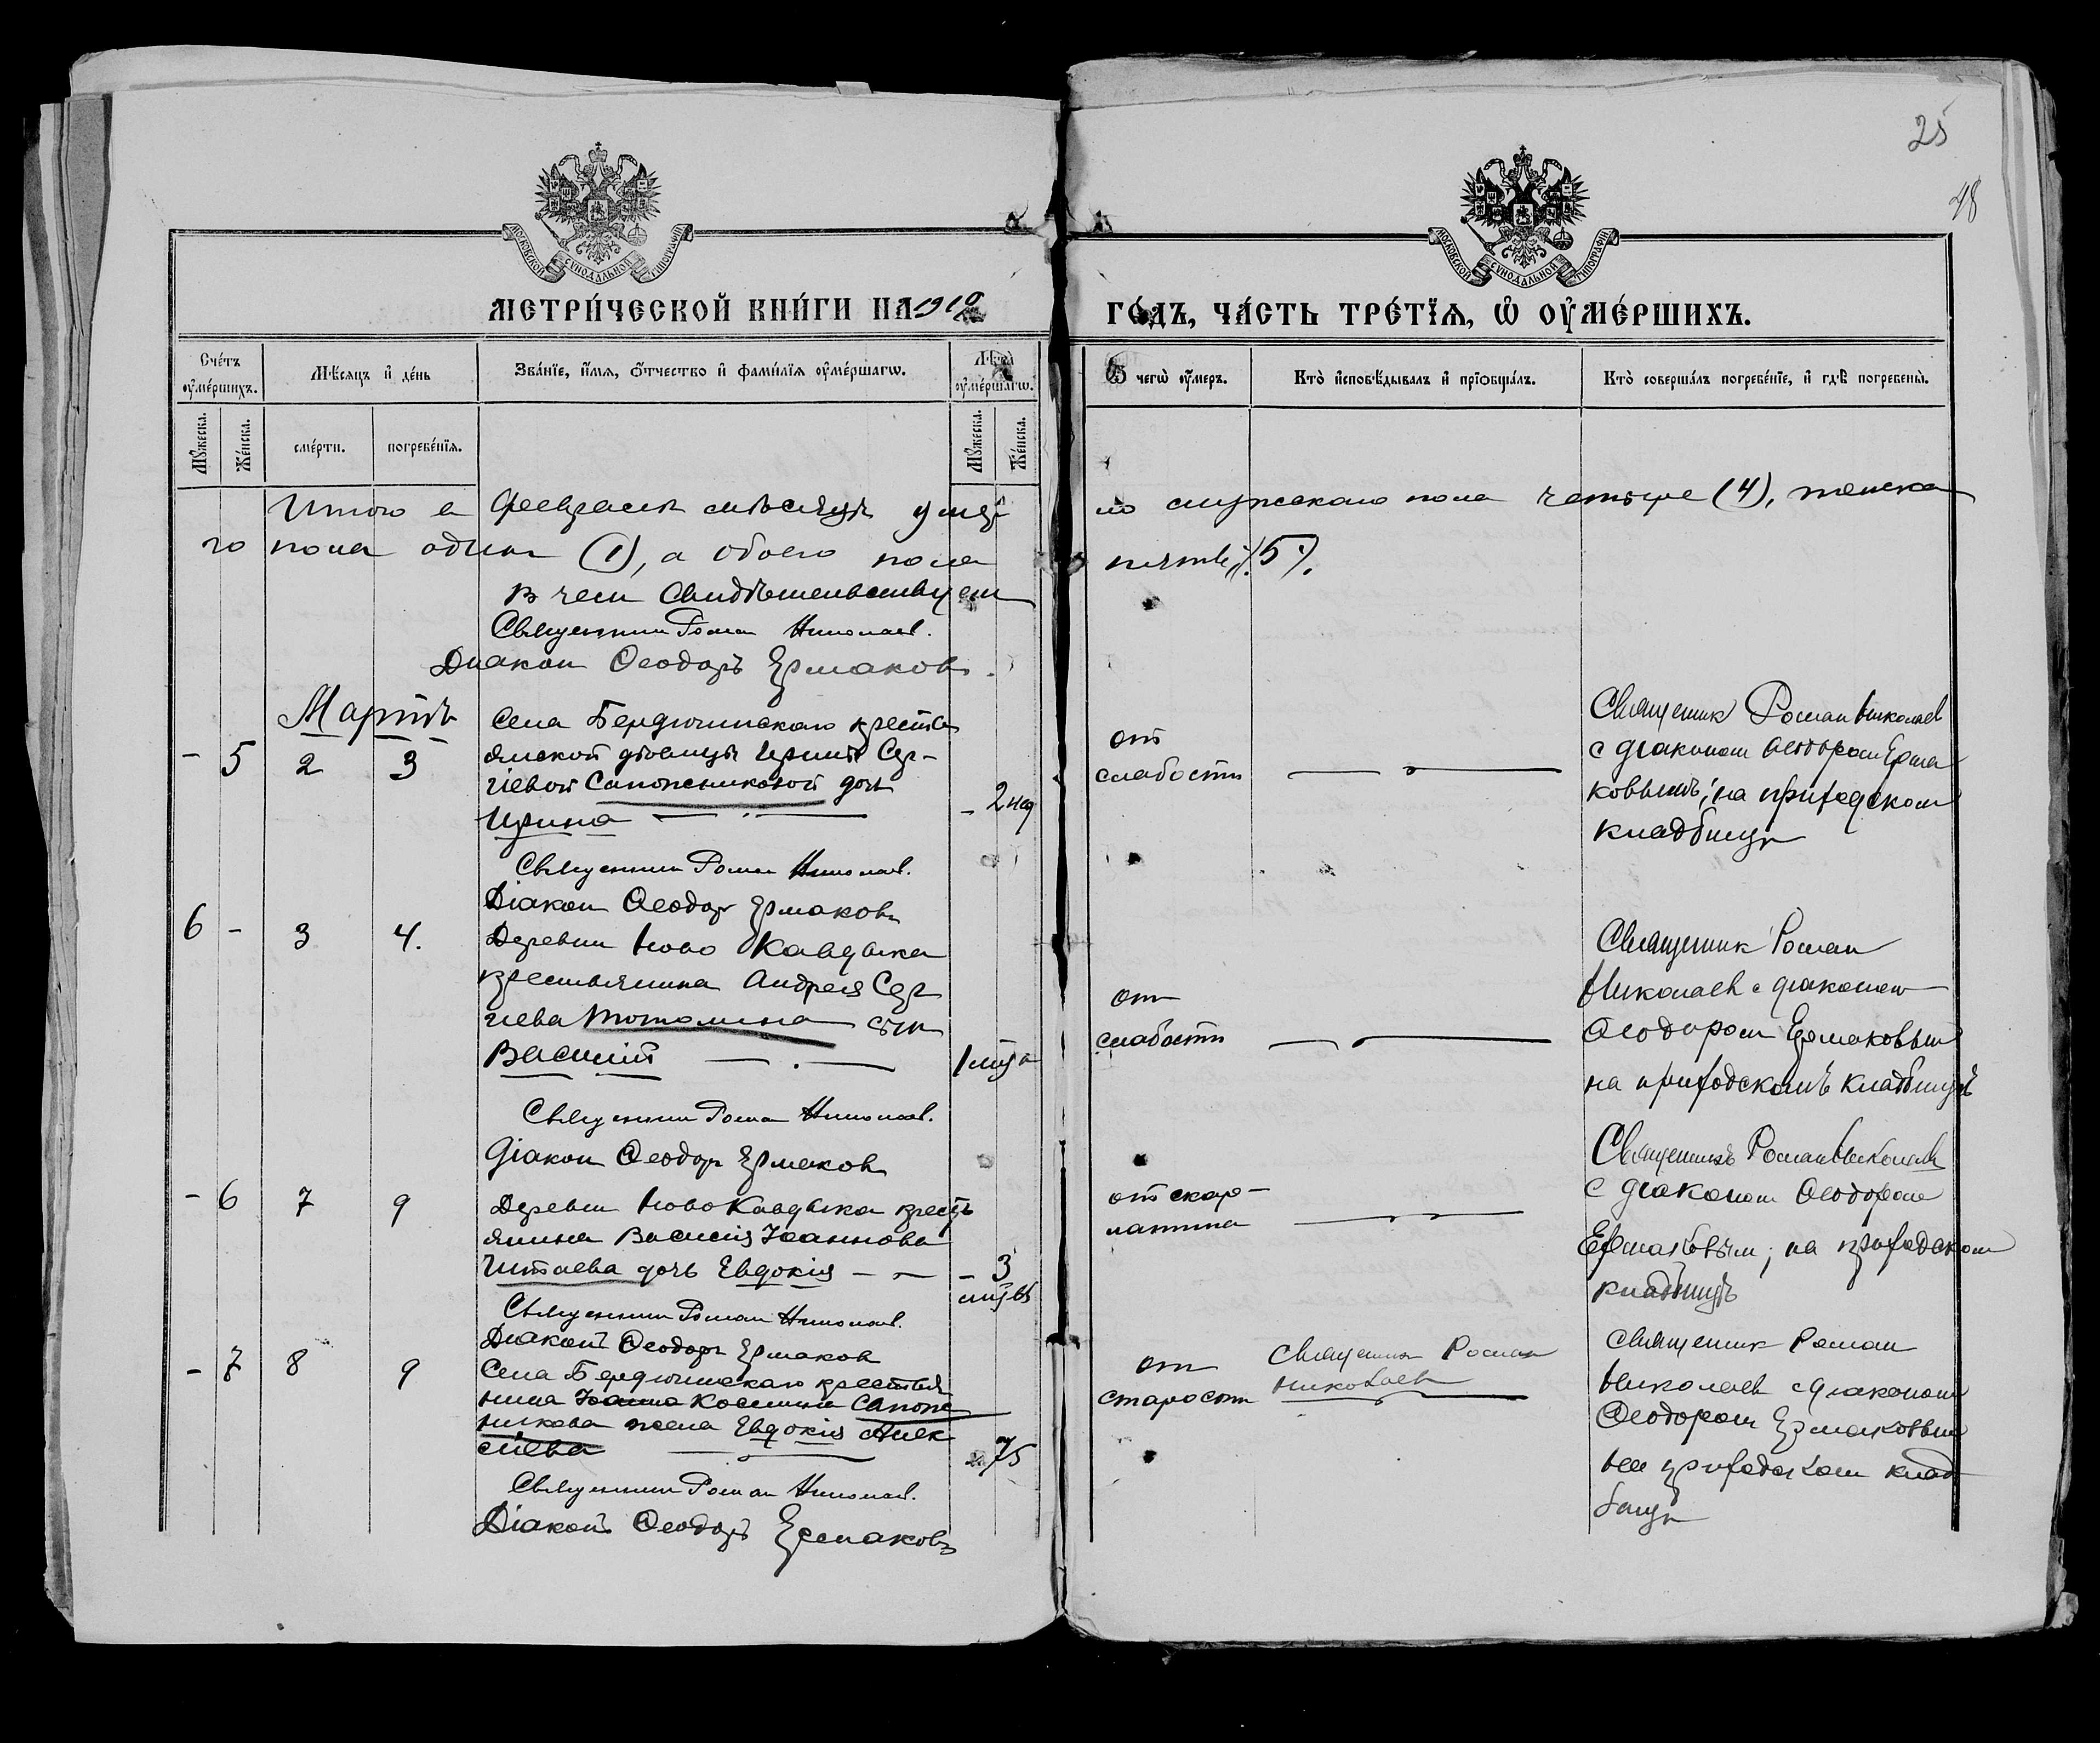 25
48
МОСКОВСКОЙ СѴНОДАЛЬНОЙ ТИПОГРАФІИ
МОСКОВСКОЙ СѴНОДАЛЬНОЙ ТИПОГРАФІИ
МЕТРИ́ЧЕСКОЙ КНИ́ГИ НА 191
ГО́ДЪ, ЧА́СТЬ ТРЕ́ТІѦ, Ѡ҆ ОУ҆МЕ́РШИХЪ.
Сче́тъ оу҆ме́ршихъ.
Мѣ́сяцъ и҆ де́нь
Зва́нїе, и҆́мѧ, ѻ҆́тчество и҆ фами́лїѧ оу҆ме́ршагѡ.
Лѣ́та оу҆ме́ршагѡ.
Ѿ чегѡ̀ оу҆́меръ.
Кто̀ и҆сповѣ́дывалъ и҆ прїѡбща́лъ.
Кто̀ соверша́лъ погребе́нїе, и҆ гдѣ̀ погребены̀.
Мꙋ́жеска.
Же́нска.
сме́рти.
погребе́нїѧ.
Мꙋ́жеска.
Же́нска.
Итого в Феврале месяце умер
ло мужскаго пола четыре (4), женска
го пола один (1), а обоего пола
пять (5).
в чем свидѣтельствуем
Священник Роман Николаев.
Диакон Ѳеодоръ Ермаковъ.
Мартъ
- 5 2 3
Села Бердюгинскаго крестья
янской дѣвицы Ирины Сер-
гіевой Сапожниковой дочь
Ирина
- 2 нед
от
слабости
Священник Роман Николаев
с диаконом Ѳеодором Ерма
ковымъ, на приходском
кладбище
Священник Роман Николаев.
Діакон Ѳеодор Ермаковъ
6 - 3 4.
Деревни Ново
крестьянина Андрея Сер
гіева сын
Василій
1 мца
от
слабости
Священник Роман
Николаев с диаконом
Ѳеодором Ермаковым
на приходскомъ кладбищѣ
Священник Роман Николаев.
Діакон Ѳеодор Ермаков
- 6 7 9
Деревни Ново крест
янина Василія Іоаннова
дочь Евдокія
- 3
мцев
от скар-
латина
Священникъ Роман Николаев
с диаконом Ѳеодором
Ермаковым; на приходском
кладбищѣ
Священник Роман Николаев.
Диакон Ѳеодоръ Ермаков
- 7 8 9
Села Бердюгинскаго крестья
нина Іоанна Косьмина Сапож
никова жена Евдокія Алек
сіева
75
от
старости
Священник Роман
Николаев
Священник Роман
Николаев с диаконом
Ѳеодором Ермаковым
на приходском клад
бище
Священник Роман Николаев.
Діаконъ Ѳеодоръ Ермаковъ